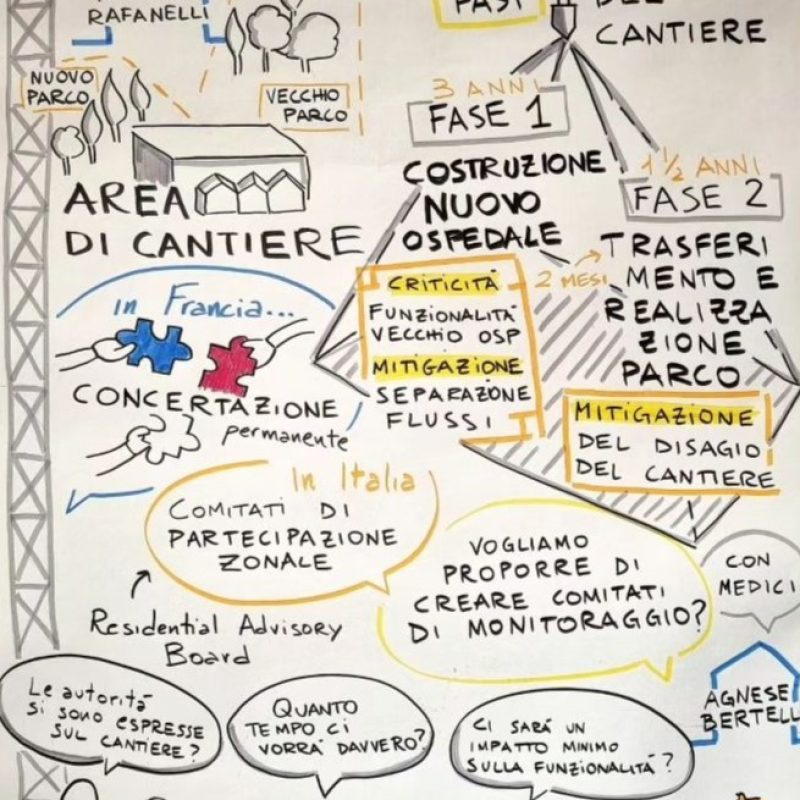 RAFANELLI
NUOVO
PARCO
VECCHIO
PARCO
AREA
DI CANTIERE
FASI
DEL
CANTIERE
3 ANNI
FASE 1
COSTRUZIONE
NUOVO
OSPEDALE
1 1/2 ANNI
FASE 2
TRASFERI
MENTO E
REALIZZA
ZIONE
PARCO
CRITICITÀ
FUNZIONALITÀ
VECCHIO OSP
MITIGAZIONE
SEPARAZIONE
FLUSSI
2 MESI
MITIGAZIONE
DEL DISAGIO
DEL CANTIERE
in Francia...
CONCERTAZIONE
permanente
In Italia
COMITATI DI
PARTECIPAZIONE
ZONALE
Residential Advisory
Board
VOGLIAMO
PROPORRE DI
CREARE COMITATI
DI MONITORAGGIO?
CON
MEDICI
AGNESE
BERTELL
Le autorità
si sono espresse
sul cantiere?
QUANTO
TEMPO CI
VORRÀ DAVVERO?
CI SARÀ UN
IMPATTO MINIMO
SULLA FUNZIONALITÀ?